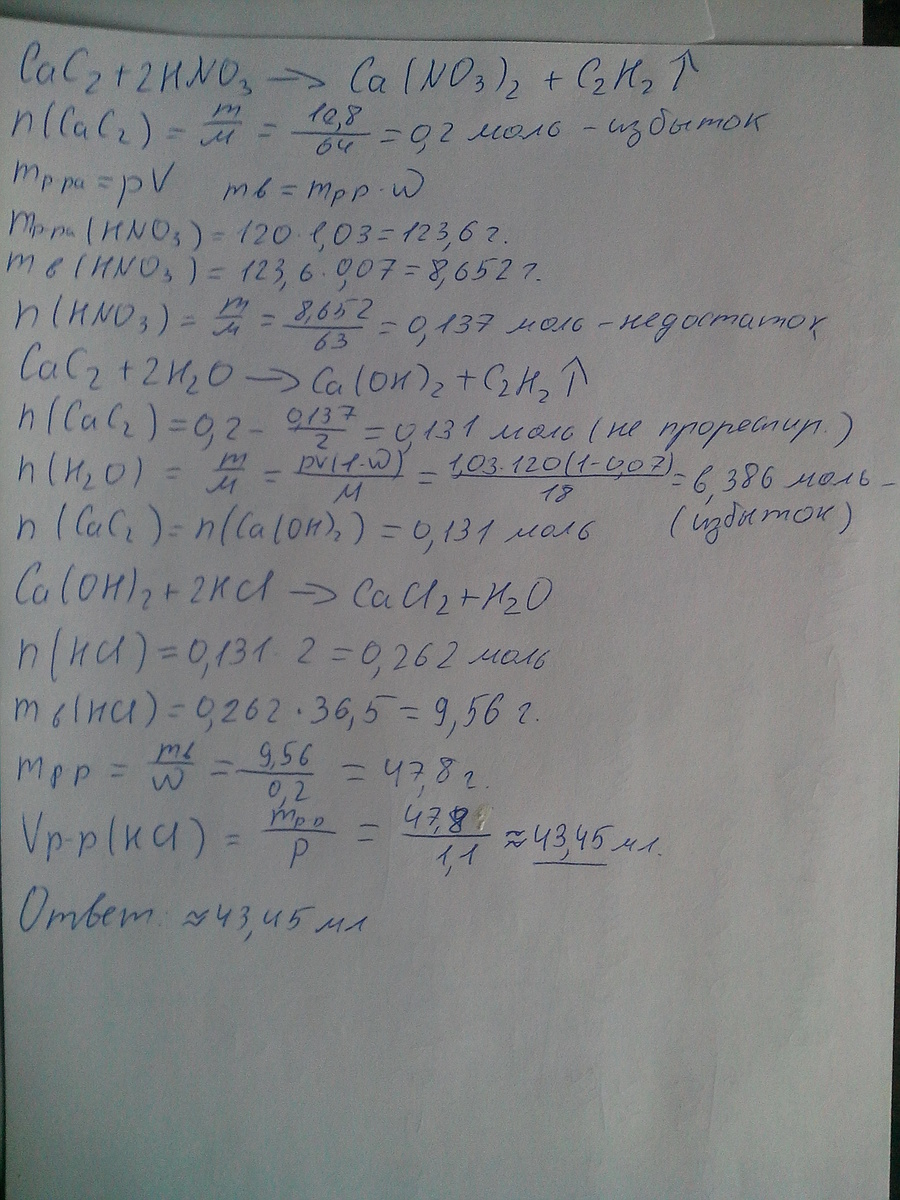 CaC₂ + 2HNO₃ → Ca(NO₃)₂ + C₂H₂↑
n(CaC₂) = m/M = 12,8/64 = 0,2 моль – избыток
mр ра = pV mв = mрр · W
mр ра(HNO₃) = 120 · 1,03 = 123,6 г.
mв(HNO₃) = 123,6 · 0,07 = 8,652 г.
n(HNO₃) = m/M = 8,652/63 = 0,137 моль – недостаток
CaC₂ + 2H₂O → Ca(OH)₂ + C₂H₂↑
n(CaC₂) = 0,2 – 0,137/2 = 0,131 моль (не прореагир.)
n(H₂O) = m/M = pV(1-W)/M = 1,03·120(1-0,07)/18 = 6,386 моль –
n(CaC₂) = n(Ca(OH)₂) = 0,131 моль (избыток)
Ca(OH)₂ + 2HCl → CaCl₂ + H₂O
n(HCl) = 0,131 · 2 = 0,262 моль
mв(HCl) = 0,262 · 36,5 = 9,56 г.
mрр = mв/W = 9,56/0,2 = 47,8 г.
Vр-р(HCl) = mрр/p = 47,8/1,1 ≈ 43,45 мл.
Ответ: ≈ 43,45 мл